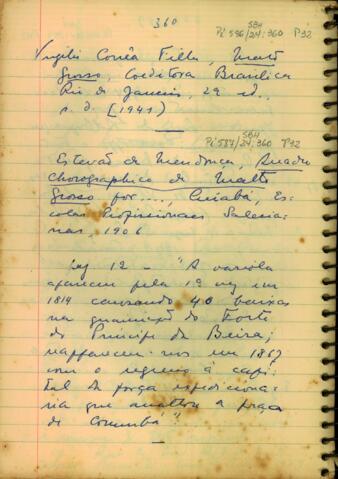 360
SBH
Pi 596/24:360 P32
Virgilio Corrêa Filho, Matto
Grosso, Coeditora Brasilica
Rio de Janeiro, 2ª ed.,
s. d. [1941]
SBH
Pi 587/24:360 P32
Estevão de Mendonça, Quadro
Chorographico de Matto
Grosso por ...., Cuiabá, Es-
colas Profissionais Salesia-
nas, 1906
pag 12 - "A variola
apareceu pela 1ª vez em
1814 causando 40 baixas
na guarnição do Forte
do Principe da Beira;
reappareceu-nos em 1867
com o regresso á capi-
tal da força expediciona-
ria que assaltou a praça
de Corumbá"